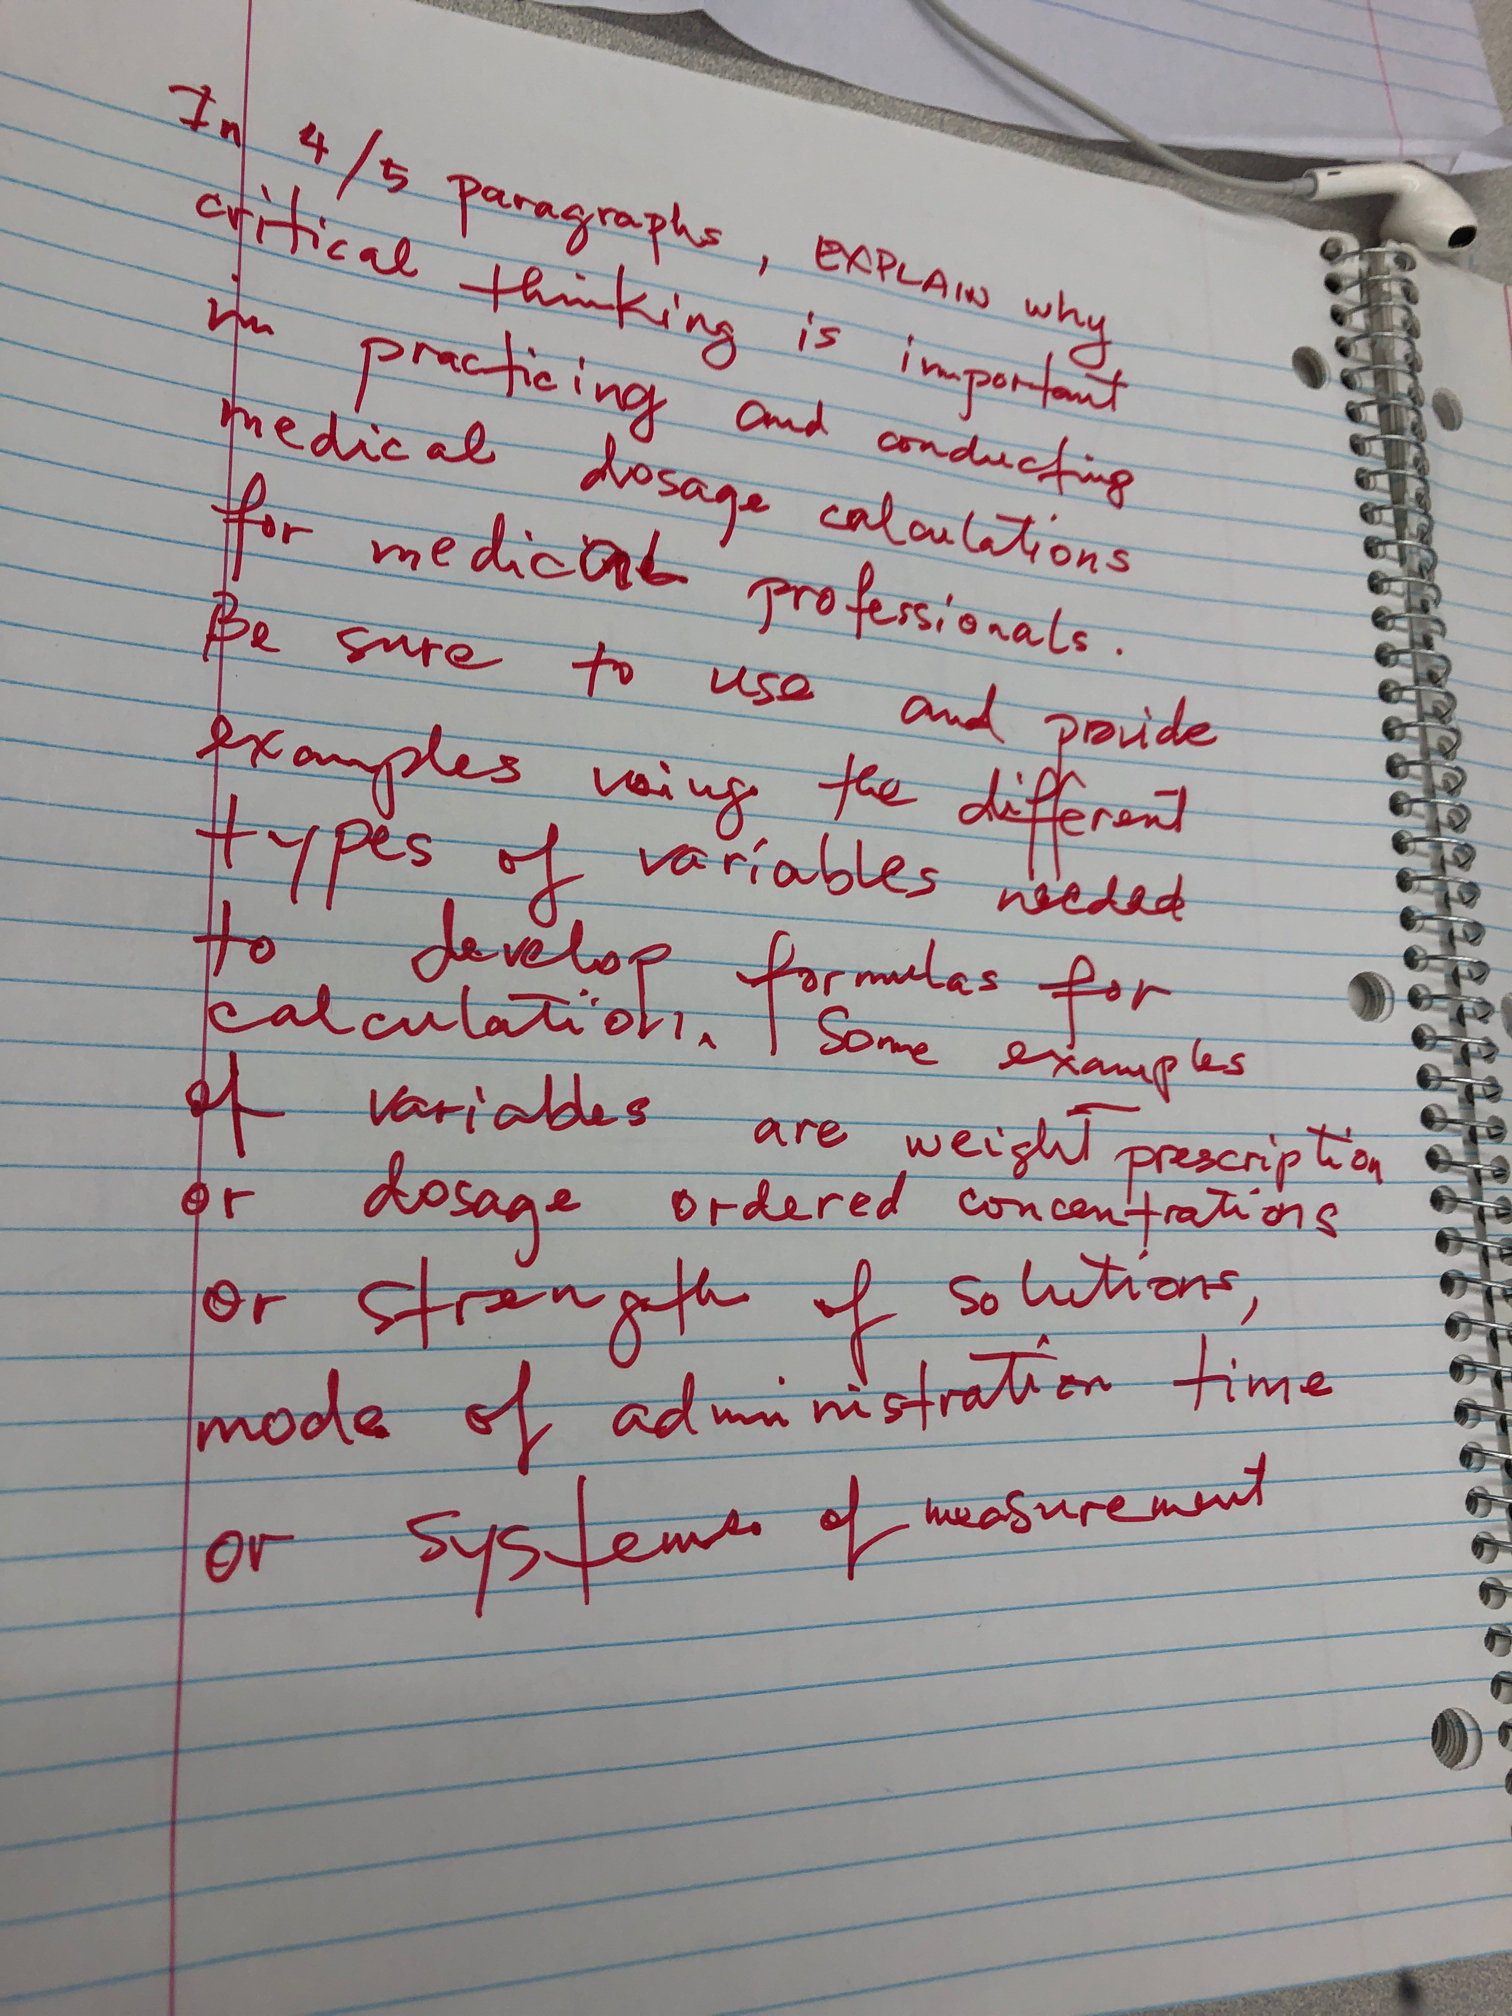 In 4/5 paragraphs, EXPLAIN why
critical thinking is important
in practicing and conducting
medical dosage calculations
for medical professionals.
Be sure to use and provide
examples using the different
types of variables needed
to develop formulas for
calculation. Some examples
of variables are weight prescription
or dosage ordered concentrations
or strength of solutions,
mode of administration time
or systems of measurement